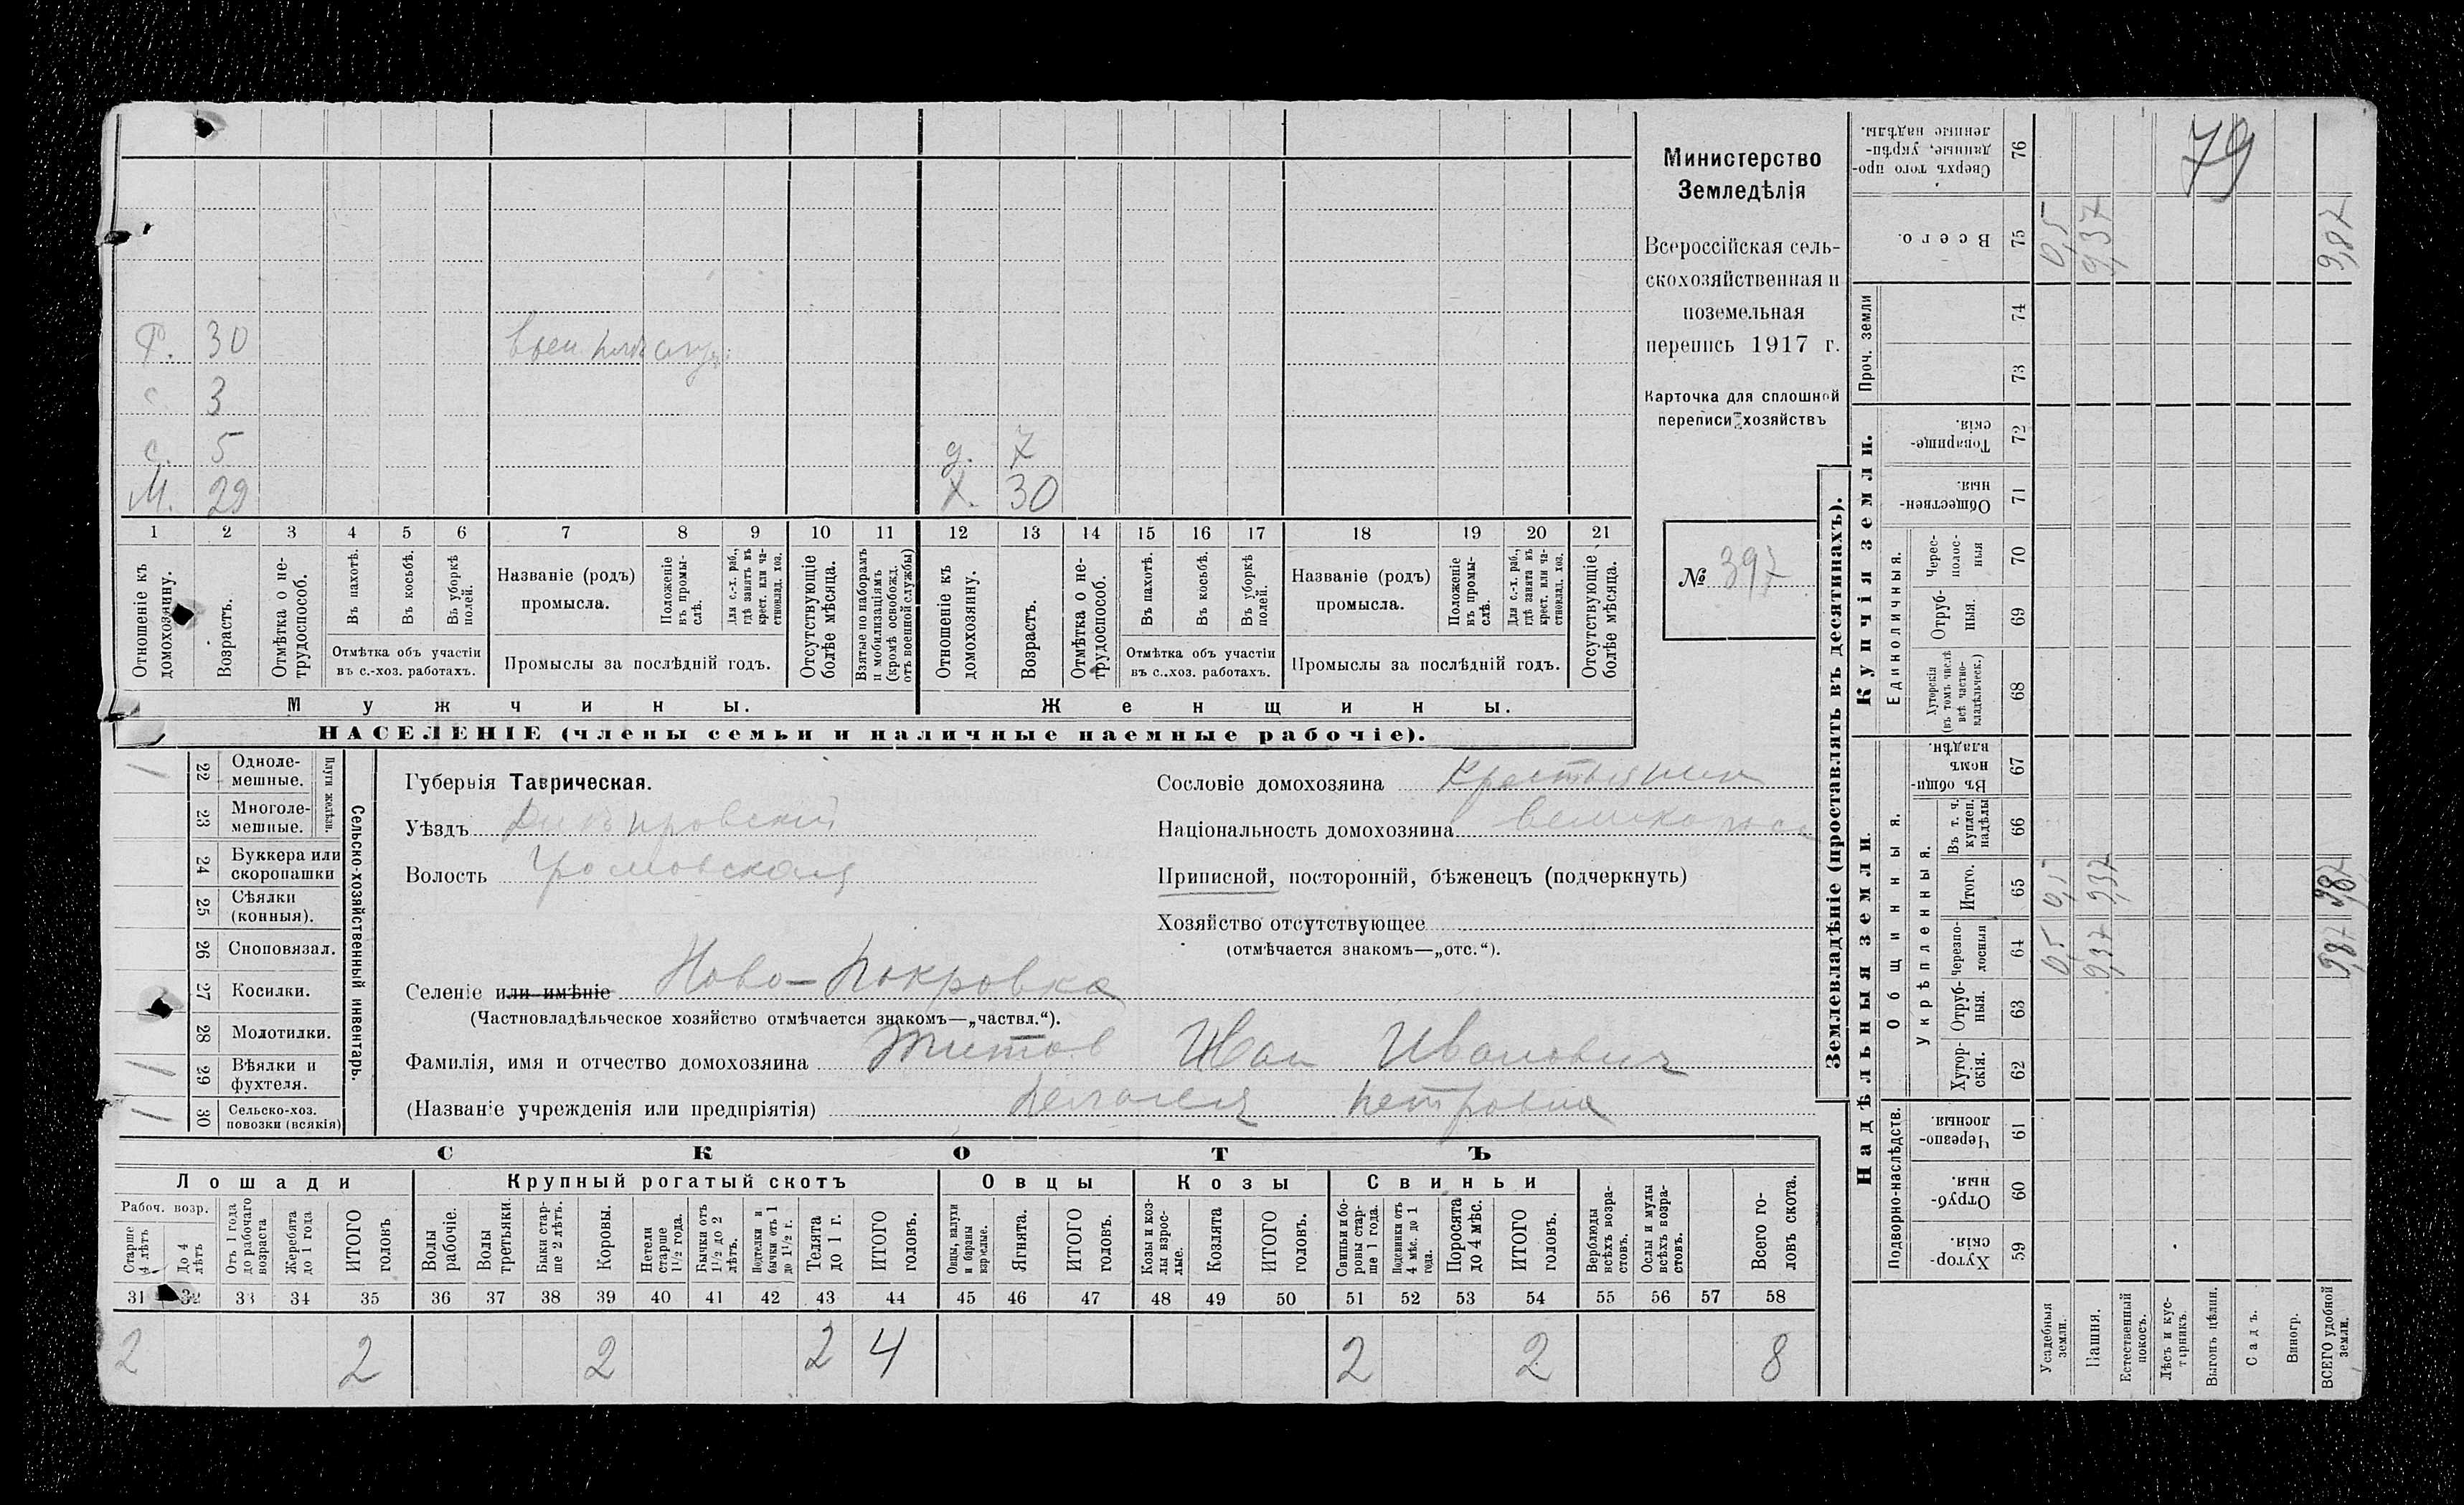 79
Министерство
Земледѣлія
Всероссійская сель-
скохозяйственная и
поземельная
перепись 1917 г.
Карточка для сплошной
переписи хозяйствъ
№ 397
Р. 30
с. 3
с. 5 д. 7
М. 29 Х. 30
1 2 3 4 5 6 7 8 9 10 11 12 13 14 15 16 17 18 19 20 21
Отношеніе къ домохозяину.
Возрастъ.
Отмѣтка о не-трудоспособ.
Въ пахотѣ.
Въ косьбѣ.
Въ уборкѣ полей.
Отмѣтка объ участіи
въ с.-хоз. работахъ.
Названіе (родъ)
промысла.
Положеніе въ промы-слѣ.
Для с.-х. раб., гдѣ занятъ въ крест. или ча-стновлад. хоз.
Промыслы за послѣдній годъ.
Отсутствующіе болѣе мѣсяца.
Взятые по наборамъ и мобилизаціямъ (кромѣ освобожд. отъ военной службы)
Отношеніе къ домохозяину.
Возрастъ.
Отмѣтка о не-трудоспособ.
Въ пахотѣ.
Въ косьбѣ.
Въ уборкѣ полей.
Отмѣтка объ участіи
въ с.-хоз. работахъ.
Названіе (родъ)
промысла.
Положеніе въ промы-слѣ.
Для с.-х. раб., гдѣ занята въ крест. или ча-стновлад. хоз.
Промыслы за послѣдній годъ.
Отсутствующіе болѣе мѣсяца.
Мужчины. Женщины.
НАСЕЛЕНІЕ (члены семьи и наличные наемные рабочіе).
Сельско-хозяйственный инвентарь.
Плуги желѣзн.
1 22 Одноле-мешные.
23 Многоле-мешные.
24 Буккера или скоропашки
25 Сѣялки (конныя).
26 Сноповязал.
27 Косилки.
28 Молотилки.
1 29 Вѣялки и фухтеля.
1 30 Сельско-хоз. повозки (всякія)
Губернія Таврическая.
Уѣздъ Днѣпровскій
Волость Громовская
Селеніе или имѣніе Ново-Покровка
(Частновладѣльческое хозяйство отмѣчается знакомъ—„частвл.“).
Фамилія, имя и отчество домохозяина Титов Иван Иванович
(Названіе учрежденія или предпріятія) Пелагея Петровна
Сословіе домохозяина Крестьянин
Національность домохозяина великоросс
Приписной, посторонній, бѣженецъ (подчеркнуть)
Хозяйство отсутствующее
(отмѣчается знакомъ—„отс.“).
СКОТЪ
Лошади Крупный рогатый скотъ Овцы Козы Свиньи
Рабоч. возр.
Старше 4 лѣтъ
До 4 лѣтъ
Отъ 1 года до рабочаго возраста
Жеребята до 1 года
ИТОГО головъ
Волы рабочіе.
Волы третьяки.
Быки стар-ше 2 лѣтъ.
Коровы.
Нетели старше 1½ года.
Бычки отъ 1½ до 2 лѣтъ.
Подтелки и бычки отъ 1 до 1½ г.
Телята до 1 г.
ИТОГО головъ.
Овцы, валухи и бараны взрослые.
Ягнята.
ИТОГО головъ.
Козы и коз-лы взрос-лые.
Козлята
ИТОГО головъ.
Свиньи и бо-ровы стар-ше 1 года.
Подсвинки отъ 4 мѣс. до 1 года.
Поросята до 4 мѣс.
ИТОГО головъ.
Верблюды всѣхъ возра-стовъ.
Ослы и мулы всѣхъ возра-стовъ.
Всего го-ловъ скота.
31 32 33 34 35 36 37 38 39 40 41 42 43 44 45 46 47 48 49 50 51 52 53 54 55 56 57 58
2 2 2 2 4 2 2 8
Землевладѣніе (проставлять въ десятинахъ).
Надѣльныя земли Купчія земли. Проч. земли
Подворно-наслѣдств.
Общинныя.
Укрѣпленныя.
Единоличныя.
Сверхъ того про-данные, укрѣп-ленные надѣлы. 76
Всего. 75 0,5 9,37 9,87
74
73
Товарище-скія. 72
Обществен-ныя. 71
Черес-полос-ныя 70
Отруб-ныя. 69
Хуторскія (въ томъ числѣ всѣ частно-владѣльческ.) 68
Въ общи-номъ владѣн. 67
Въ т. ч. куплен. надѣлы 66
Итого. 65 0,5 9,37 9,87
Черезпо-лосныя 64 0,5 9,37 9,87
Отруб-ныя. 63
Хутор-скія. 62
Черезпо-лосныя 61
Отруб-ныя. 60
Хутор-скія. 59
Усадебныя земли.
Пашня.
Естественный покосъ.
Лѣсъ и кус-тарникъ.
Выгонъ цѣлин.
Садъ.
Виногр.
ВСЕГО удобной земли.